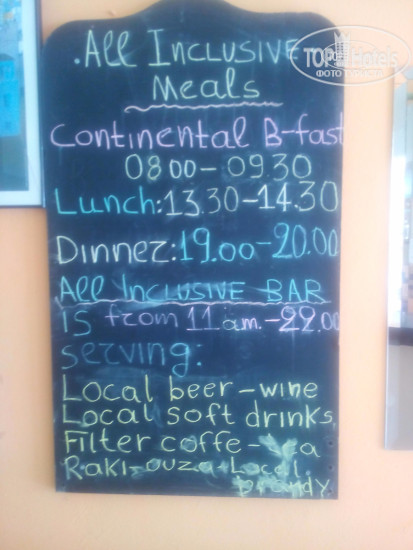 .All Inclusive
Meals
Continental B-fast
08.00-09.30
Lunch:13.30-14.30
Dinner:19.00-20.00
All Inclusive BAR
is from 11am.-22.00
serving:
Local beer-wine
Local soft drinks
Filter coffe-
Raki-ouza-Local
brandy
TopHotels
ФОТО ТУРИСТА